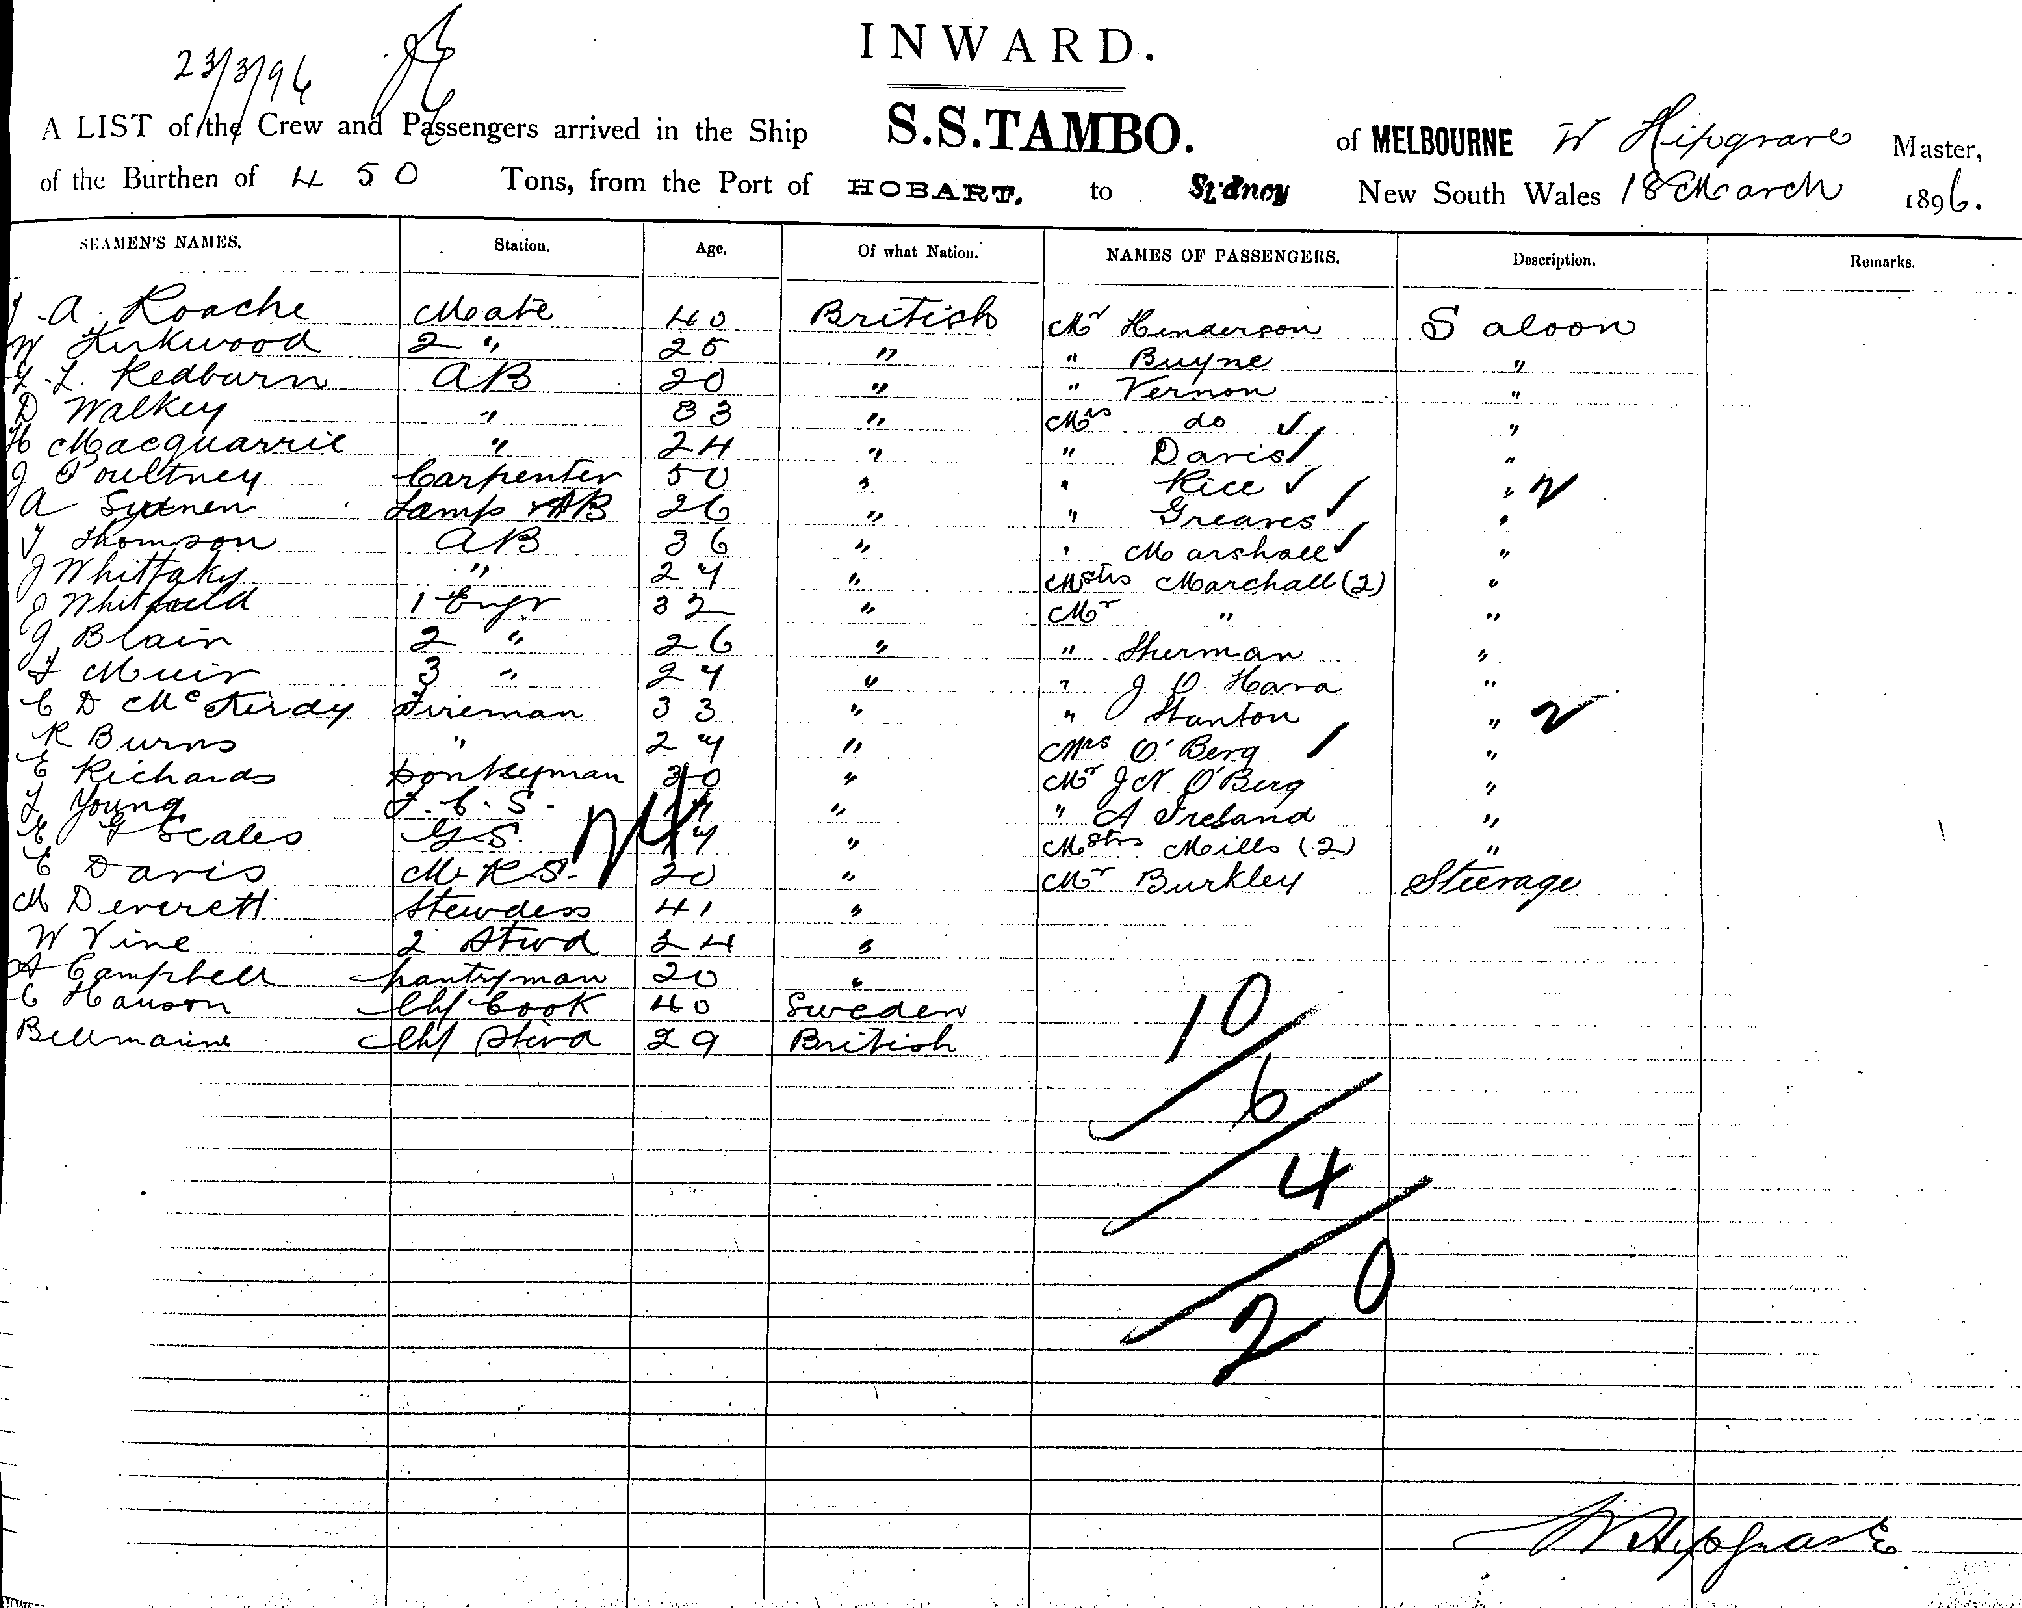 INWARD.
23/3/96
A LIST of the Crew and Passengers arrived in the Ship S.S.TAMBO. of MELBOURNE W Hipgrave Master,
of the Burthen of 450 Tons, from the Port of HOBART. to Sydney New South Wales 18 March 1896.
SEAMEN'S NAMES. Station. Age. Of what Nation. NAMES OF PASSENGERS. Description. Remarks.
J. A. Roache Mate 40 British Mr Henderson Saloon
W Kirkwood 2 " 25 " " Buyne "
L. Redburn AB 20 " " Vernon "
D Walkey " 33 " Mrs do ✓ "
H Macquarrie " 24 " " Davis "
J Poultney Carpenter 50 " " Rice ✓ " 2
A Lamp & AB 26 " " Greaves "
T Thomson AB 36 " " Marshall "
J Whittaky " 24 " Mstrs Marchall (2) "
J Whitfield 1 Engr 32 " Mr " "
J Blair 2 " 26 " " Sherman "
T Muir 3 " 24 " " J O Hara "
C D McKirdy Fireman 33 " " Stanton " 2
R Burns " 24 " Mrs O'Berg "
E Richards Donkeyman 30 " Mr J N O'Berg "
L Young F.C.S. " " A Ireland "
E G Scales G.S. " Mstrs Mills (2) "
C Davis M.R.S. 20 " Mr Burkley Steerage
M Deverett Stewdess 41 "
W Vine 2 Stwd 24 "
A Campbell pantryman 20 "
C Hanson Chf Cook 40 Sweden
Bellmaine Chf Stwd 29 British
24
10
6
4
0
2
W Hipgrave